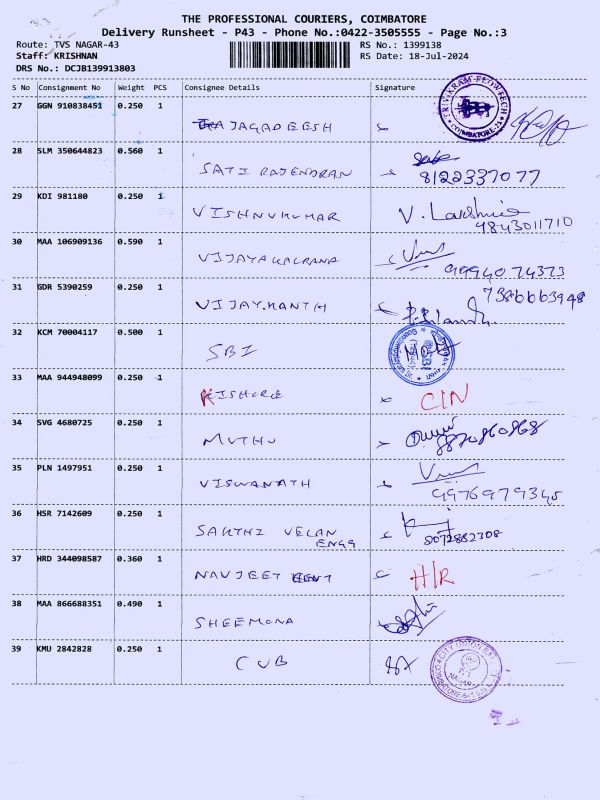 THE PROFESSIONAL COURIERS, COIMBATORE
Delivery Runsheet - P43 - Phone No.:0422-3505555 - Page No.:3
Route: TVS NAGAR-43 RS No.: 1399138
Staff: KRISHNAN RS Date: 18-Jul-2024
DRS No.: DCJB139913803
S No Consignment No Weight PCS Consignee Details Signature
27 GGN 910838451 0.250 1 JAGADEESH
TRIVIKRAM FLOWTECH COIMBATORE-25
28 SLM 350644823 0.560 1 SATI RAJENDRAN 8122337077
29 KDI 981180 0.250 1 VISHNUKUMAR V. Lakshmi
9843011710
30 MAA 106909136 0.590 1 VIJAYAKALPANA 9994074373
31 GDR 5390259 0.250 1 VIJAY.KANTH 7386663948
32 KCM 70004117 0.500 1 SBI
SBI
33 MAA 944948099 0.250 1 KISHORE CIN
34 SVG 4680725 0.250 1 MUTHU 8870860868
35 PLN 1497951 0.250 1 VISWANATH
9976979345
36 HSR 7142609 0.250 1 SAKTHI VELAN
ENGG 8072882308
37 HRD 344098587 0.360 1 NAVJEET H/R
38 MAA 866688351 0.490 1 SHEEMONA
39 KMU 2842828 0.250 1 CUB
CITY UNION
NAGAR